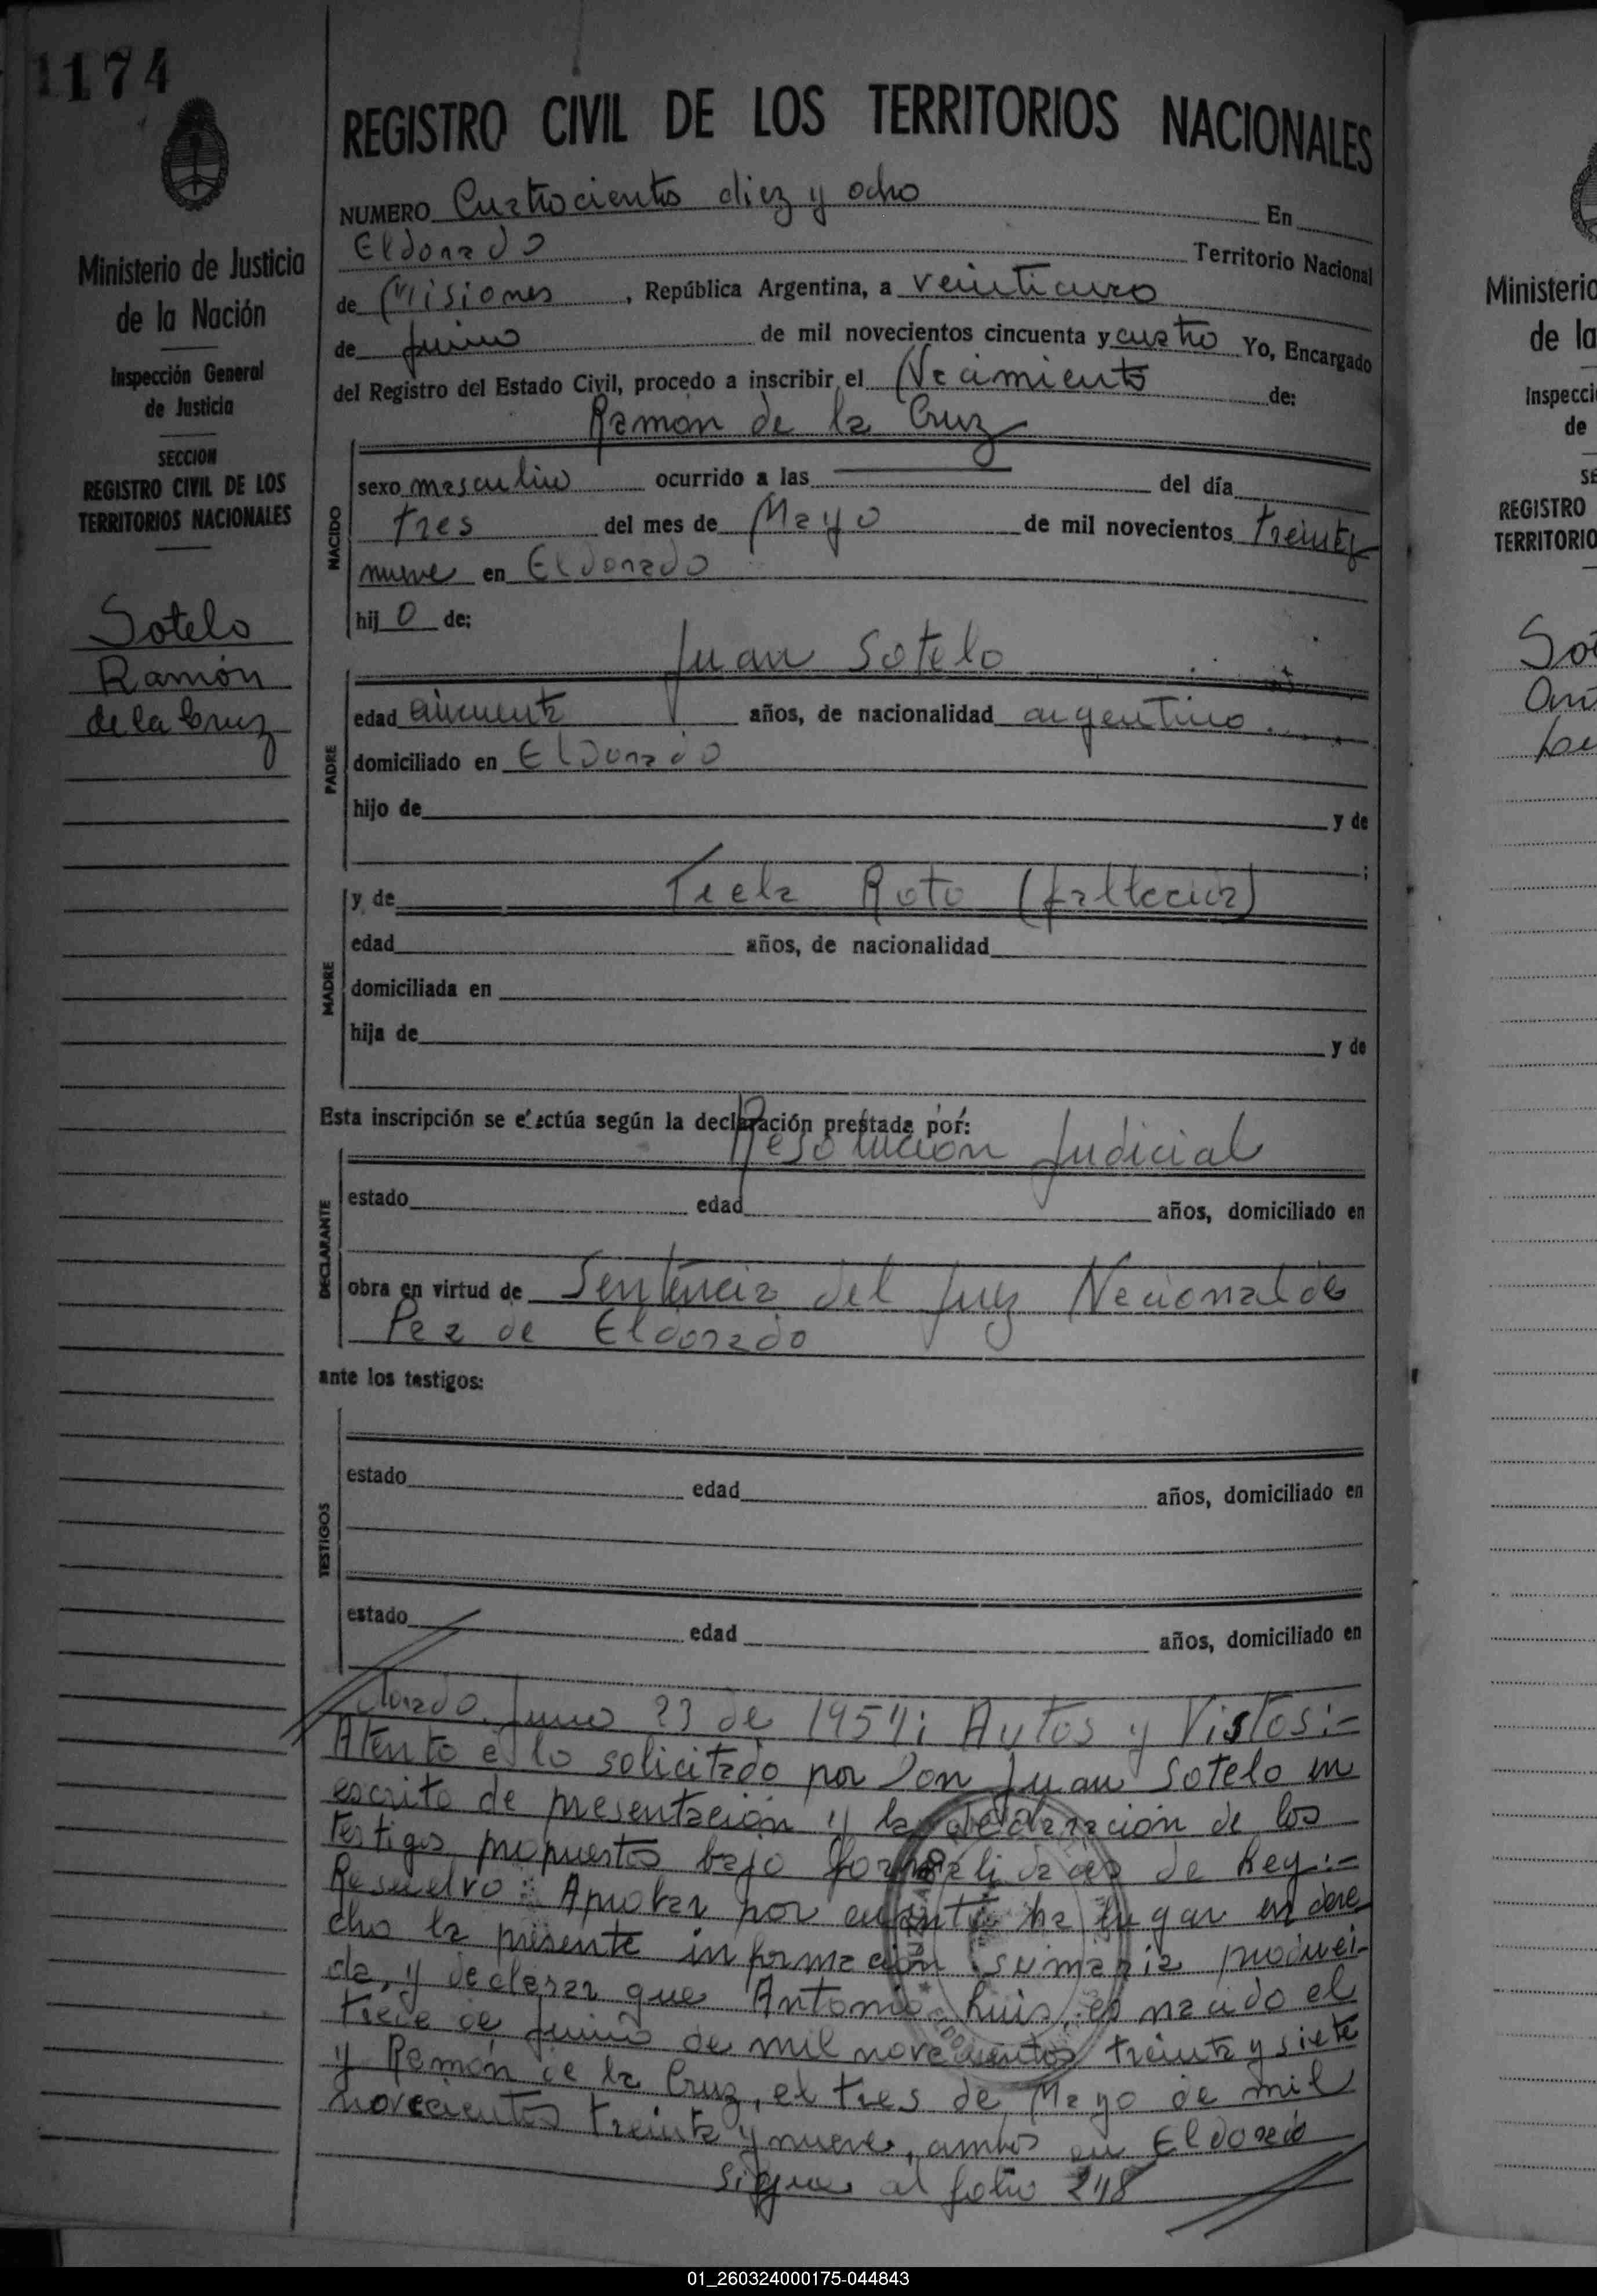 1174
REGISTRO CIVIL DE LOS TERRITORIOS NACIONALES
NUMERO Cuatrociento diez y ocho En
Eldorado Territorio Nacional
de Misiones, República Argentina, a veinticinco
de junio de mil novecientos cincuenta y cuatro Yo, Encargado
del Registro del Estado Civil, procedo a inscribir el Nacimiento de:
Ramón de la Cruz
Ministerio de Justicia
de la Nación
Inspección General
de Justicia
SECCION
REGISTRO CIVIL DE LOS
TERRITORIOS NACIONALES
Sotelo
Ramón
de la Cruz
NACIDO
sexo masculino ocurrido a las del día
tres del mes de Mayo de mil novecientos treinta y
nueve en Eldorado
hijo de:
Juan Sotelo
PADRE
edad cincuenta años, de nacionalidad argentino
domiciliado en Eldorado
hijo de y de
;
MADRE
y de Roto (fallecida)
edad años, de nacionalidad
domiciliada en
hija de y de
Esta inscripción se efectúa según la declaración prestada por:
Resolución Judicial
DECLARANTE
estado edad años, domiciliado en
obra en virtud de Sentencia del Juez Nacional de
Paz de Eldorado
ante los testigos:
TESTIGOS
estado edad años, domiciliado en
estado edad años, domiciliado en
Junio 23 de 1954: Autos y Vistos:-
Atento a lo solicitado por Don Juan Sotelo en
escrito de presentación y la declaración de los
testigos propuestos bajo formalidades de Ley:-
Resuelvo: Aprobar por cuanto ha lugar en dere
cho la presente información sumaria produci-
da, y declarar que Antonio Luis, es nacido el
trece de junio de mil novecientos treinta y siete
y Ramón de la Cruz, el tres de Mayo de mil
novecientos treinta y nueve, ambos en Eldorado
Sigue al folio 248
Ministerio
de la
Inspecci
de
SE
REGISTRO
TERRITORIO
So
01_260324000175-044843